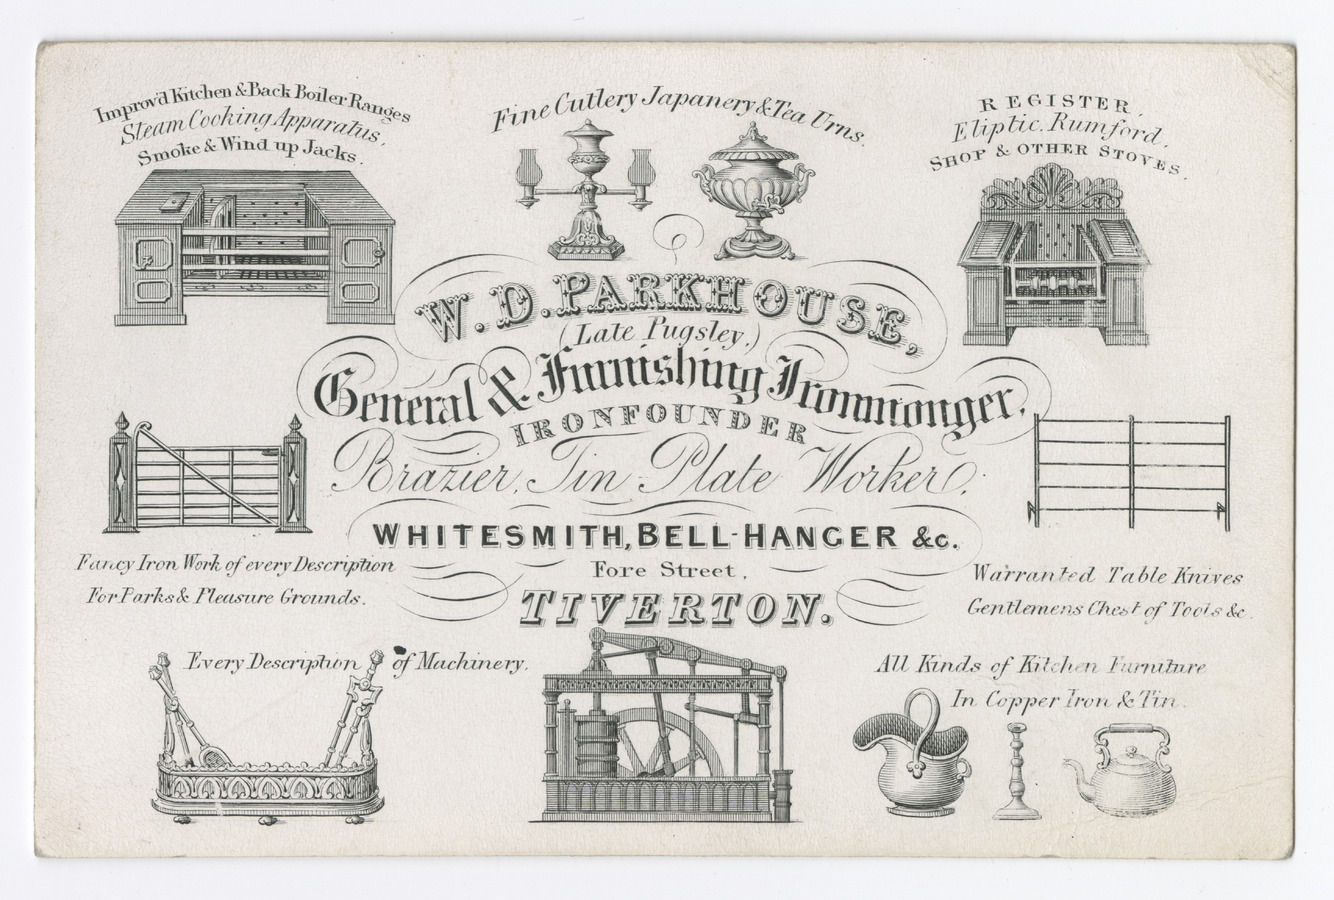 Improv'd Kitchen & Back Boiler Ranges
Steam Cooking Apparatus,
Smoke & Wind up Jacks.
Fine Cutlery Japanery & Tea Urns.
REGISTER,
Eliptic, Rumford,
SHOP & OTHER STOVES.
W. D. PARKHOUSE,
(Late Pugsley,)
General & Furnishing Ironmonger,
IRONFOUNDER
Brazier, Tin Plate Worker,
WHITESMITH, BELL-HANGER &c.
Fore Street,
TIVERTON.
Fancy Iron Work of every Description
For Parks & Pleasure Grounds.
Warranted Table Knives
Gentlemens Chest of Tools &c.
Every Description of Machinery.
All Kinds of Kitchen Furniture
In Copper Iron & Tin.